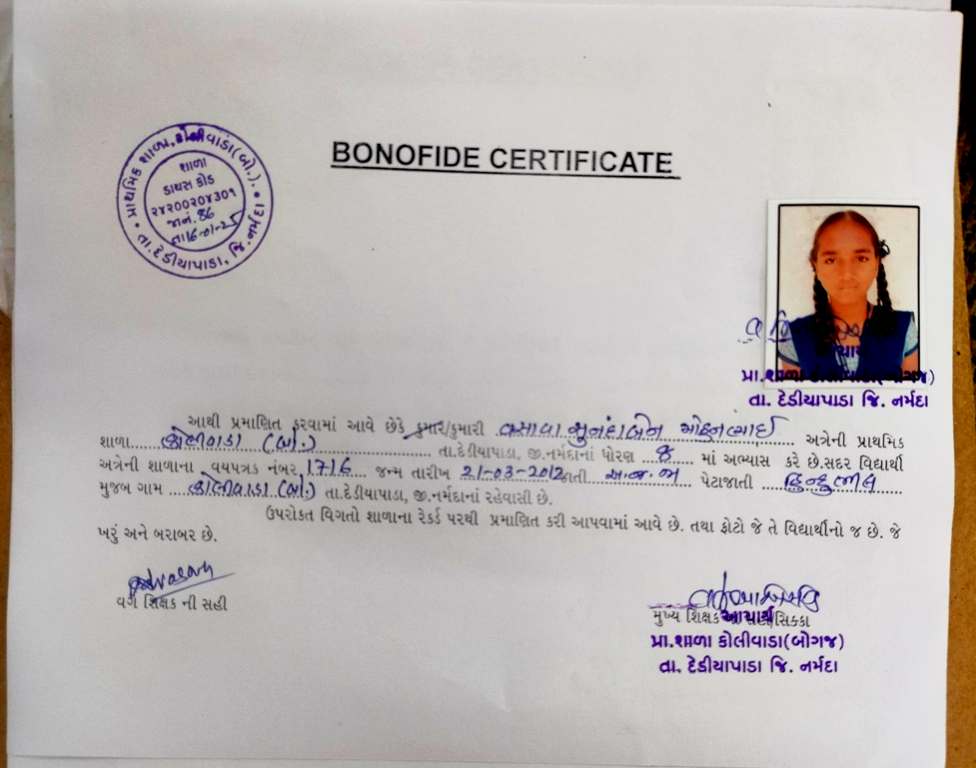 BONOFIDE CERTIFICATE
પ્રાથમિક શાળા, કોલીવાડા(બો.). તા.દેડીયાપાડા, જિ.નર્મદા
શાળા
ડાયસ કોડ
૨૪૨૦૦૨૦૪૩૦૧
જાનં. 86
તા16-01-25
પ્રા.શાળા કોલીવાડા(બોગજ)
તા. દેડીયાપાડા જિ. નર્મદા
આથી પ્રમાણિત કરવામાં આવે છેકે કુમાર/કુમારી વસાવા સુનંદાબેન મોહનભાઈ અત્રેની પ્રાથમિક
શાળા કોલીવાડા (બો.) તા.દેડીયાપાડા, જી.નર્મદાનાં ધોરણ ૭ માં અભ્યાસ કરે છે.સદર વિદ્યાર્થી
અત્રેની શાળાના વયપત્રક નંબર 1716 જન્મ તારીખ 21-03-2012 જાતી અ.જ.જ પેટાજાતી હિન્દુભીલ
મુજબ ગામ કોલીવાડા(બો.) તા.દેડીયાપાડા, જી.નર્મદાનાં રહેવાસી છે.
ઉપરોક્ત વિગતો શાળાના રેકર્ડ પરથી પ્રમાણિત કરી આપવામાં આવે છે. તથા ફોટો જે તે વિદ્યાર્થીનો જ છે. જે
ખરું અને બરાબર છે.
વર્ગ શિક્ષક ની સહી
મુખ્ય શિક્ષક સહી/સિક્કા
આચાર્ય
પ્રા.શાળા કોલીવાડા(બોગજ)
તા. દેડીયાપાડા જિ. નર્મદા